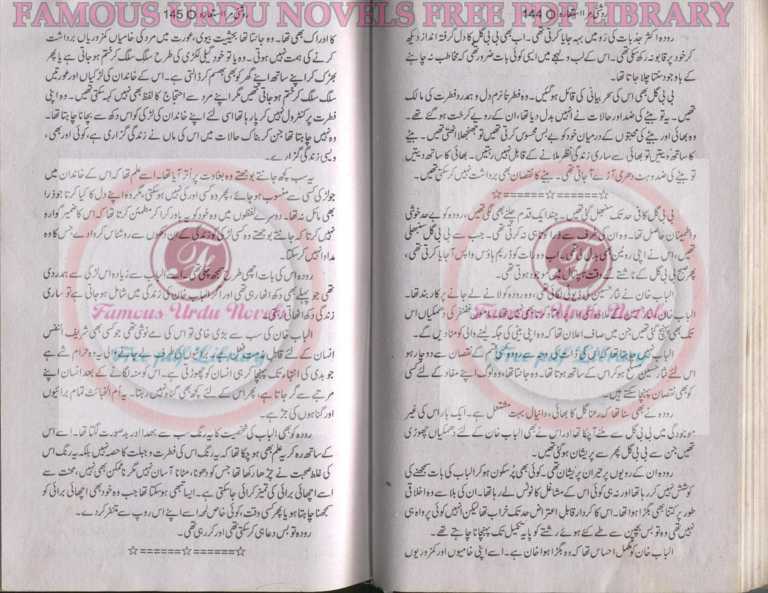 FAMOUS URDU NOVELS FREE PDF LIBRARY
روشنی مرا استعارہ O 144
رودہ اکثر جذبات کی رَو میں بہہ جایا کرتی تھی۔ اب بھی بی بی گل کا دل گرفتہ انداز دیکھ
کر خود پر قابو نہ رکھ سکی تھی۔ اس کے لب و لہجے میں ایسی کوئی بات ضرور تھی کہ مخاطب نہ چاہنے
کے باوجود سنتا چلا جاتا تھا۔
بی بی گل بھی اس کی سحر بیانی کی قائل ہو گئیں۔ وہ فطرتاً نرم دل و ہمدرد فطرت کی مالک
تھیں۔ یہ تو بیٹے کی ضد اور حالات نے انہیں بدل دیا تھا، ان کے رویے کرخت ہو گئے تھے۔
وہ بھائی اور بیٹے کی محبتوں کے درمیان خود کو بے بس محسوس کرتی تھیں تو جھنجھلا اٹھتی تھیں۔ بیٹے
کا ساتھ دیتیں تو بھائی سے ساری زندگی نظر ملانے کے قابل نہیں رہتیں۔ بھائی کا ساتھ دیتیں
تو بیٹے کی ضد و ہٹ دھرمی آڑے آ جاتی تھی۔ بیٹے کا نقصان بھی برداشت نہیں کر سکتی تھیں۔
☆======☆======☆
بی بی گل کافی حد تک سنبھل گئی تھیں۔ چند ایک قدم چلنے بھی لگی تھیں، رودہ کو بے حد خوشی
و اطمینان حاصل تھا۔ وہ ان کی طرف سے ذرا کوتاہی نہ کرتی تھی۔ جب سے بی بی گل سنبھلی
تھیں، اس نے اپنی روٹین بھی بدل لی تھی۔ اب وہ رات کو ڈریم ہاؤس واپس آ جایا کرتی تھی،
پھر صبح بی بی گل کے ناشتے کے وقت ہسپتال میں موجود ہوتی تھی۔
الباب خان نے نثار حسین کی ڈیوٹی لگائی تھی، وہ رودہ کو لانے لے جانے پر کاربند تھا۔
تک بھی پہنچ گئی تھیں جن میں صاف اعلان تھا کہ وہ اپنی بیٹی کی جگہ لینے والی کو مٹا دیں گے۔
الباب نہیں چاہتا تھا کہ اس کی ذات کی وجہ سے رودہ کسی قسم کے نقصان سے دوچار ہو
اس لئے نثار حسین مسلح ہو کر اس کے ساتھ ہوتا تھا۔ وہ جانتا تھا، وہ لوگ اپنے مفاد کے لئے کسی
کو بھی نقصان پہنچا سکتے ہیں۔
رودہ نے بھی سنا تھا کہ رعنا گل کا بھائی، دانیال بہت مشتعل ہے۔ ایک بار اس کی غیر
موجودگی میں بی بی گل سے ملنے آ چکا تھا اور اس نے بھی الباب خان کے لئے دھمکیاں چھوڑی
تھیں جن سے بی بی گل پھر سے پریشان تھیں۔
رودہ ان کے رویوں پر حیران پریشان تھی۔ کوئی بھی پُرسکون ہو کر الباب کی بات سمجھنے کی
کوشش نہیں کر رہا تھا اور نہ ہی کوئی اس کے مشاغل کا نوٹس لے رہا تھا۔ ان کی بلا سے وہ اخلاقی
طور پر کتنا بھی بگڑا ہوا تھا۔ اس کا کردار قابل اعتراض حد تک خراب تھا لیکن انہیں کوئی پرواہ ہی
نہیں تھی وہ تو بس بچپن سے طے کئے ہوئے رشتے کو پایہ تکمیل تک پہنچانا چاہتے تھے۔
الباب خان کو مکمل احساس تھا کہ وہ بگڑا ہوا خان ہے۔ اسے اپنی خامیوں اور کمزوریوں
روشنی مرا استعارہ O 145
کا ادراک بھی تھا۔ وہ جانتا تھا بحیثیت بیوی، عورت میں مرد کی خامیاں کمزوریاں برداشت
کرنے کی ہمت نہیں ہوتی۔ وہ یا تو خود گیلی لکڑی کی طرح سلگ سلگ کر ختم ہو جاتی ہے یا پھر
بھڑک کر اپنے ساتھ اپنے گھر کو بھی بھسم کر ڈالتی ہے۔ اس کے خاندان کی لڑکیاں اور عورتیں
سلگ سلگ کر ختم ہو جاتی تھیں مگر اپنے مرد سے احتجاج کا لفظ بھی نہیں کہہ سکتی تھیں۔ وہ اپنی
فطرت پر کنٹرول نہیں کر پا رہا تھا اسی لئے اپنے خاندان کی لڑکی کو اس دکھ سے بچانا چاہتا تھا۔
وہ نہیں چاہتا تھا جن کربناک حالات میں اس کی ماں نے زندگی گزاری ہے، کوئی اور بھی،
ویسی زندگی گزارے۔
یہ سب کچھ جانتے بوجھتے وہ بغاوت پر اُتر آیا تھا۔ اسے علم تھا کہ اس کے خاندان میں
جو لڑکی کسی سے منسوب ہو جائے، پھر وہ کسی اور کی نہیں ہو سکتی مگر وہ اپنے دل کا کیا کرتا جو ذرا
بھی مائل نہ تھا۔ دوسرے لفظوں میں وہ خود کو یہ باور کرا کر مطمئن کرتا تھا کہ اس کا ضمیر گوارہ
نہیں کرتا کہ جانتے بوجھتے وہ کسی لڑکی کو زندگی کے ان دکھوں سے روشناس کروا دے جس کا وہ
مداوا نہیں کر سکتا۔
رودہ اس کی بات اچھی طرح سمجھ چکی تھی۔ اسے الباب سے زیادہ اس لڑکی سے ہمدردی
تھی جو پہلے بھی دکھ اٹھا رہی تھی اور اگر الباب خان کی زندگی میں شامل ہو جاتی ہے تو ساری
زندگی دکھ اٹھاتی رہے گی۔
الباب خان کی سب سے بڑی خامی تو اس کی مے نوشی تھی جو کسی بھی شریف النفس
جو بدی کی انتہا تک پہنچا کر ہی انسان کو چھوڑتی ہے۔ اس کو منہ لگانے کے بعد انسان اپنے
مرتبے سے گر جاتا ہے، پھر اس کے لئے کچھ بھی گناہ نہیں رہتا۔ یہ اُم الخبائث تمام برائیوں
اور گناہوں کی جڑ ہے۔
رودہ کو بھی الباب کی شخصیت کا یہ رنگ سب سے بھدا اور بدصورت لگتا تھا۔ اسے اس
کے ساتھ رہ کر یہ علم بھی ہو چکا تھا کہ یہ رنگ اس کی فطرت و جبلت کا حصہ نہیں بلکہ یہ رنگ اس
کی غلط صحبت نے چڑھا رکھا تھا جس کو دھونا، مٹانا آسان نہیں مگر ناممکن بھی نہیں، محنت سے
اسے اچھائی برائی کی تمیز کرائی جا سکتی ہے۔ ایسا تبھی ہو سکتا تھا جب وہ خود بھی اچھائی برائی کو
سمجھنا چاہتا ہو یا پھر کسی وقت، کوئی خاص لمحہ اسے اپنے اس روپ سے متنفر کر دے۔
رودہ تو بس دعا ہی کر سکتی تھی اور کر رہی تھی۔
☆======☆======☆
Famous Urdu Novels
Free pdf Library
Famous Urdu Novels
Free pdf Library